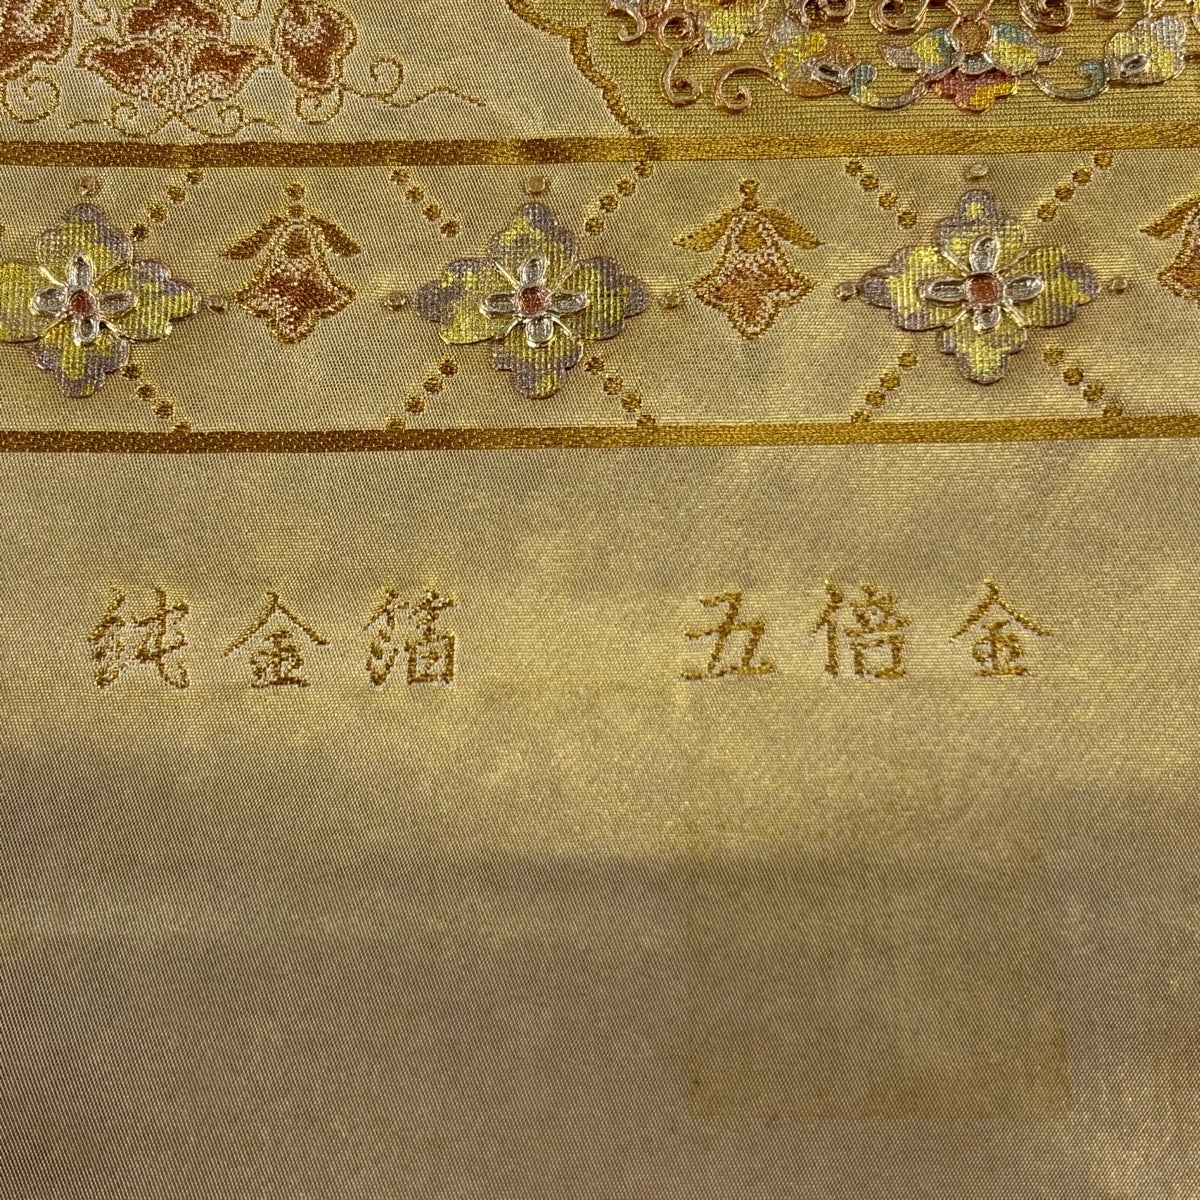 純金箔 五倍金